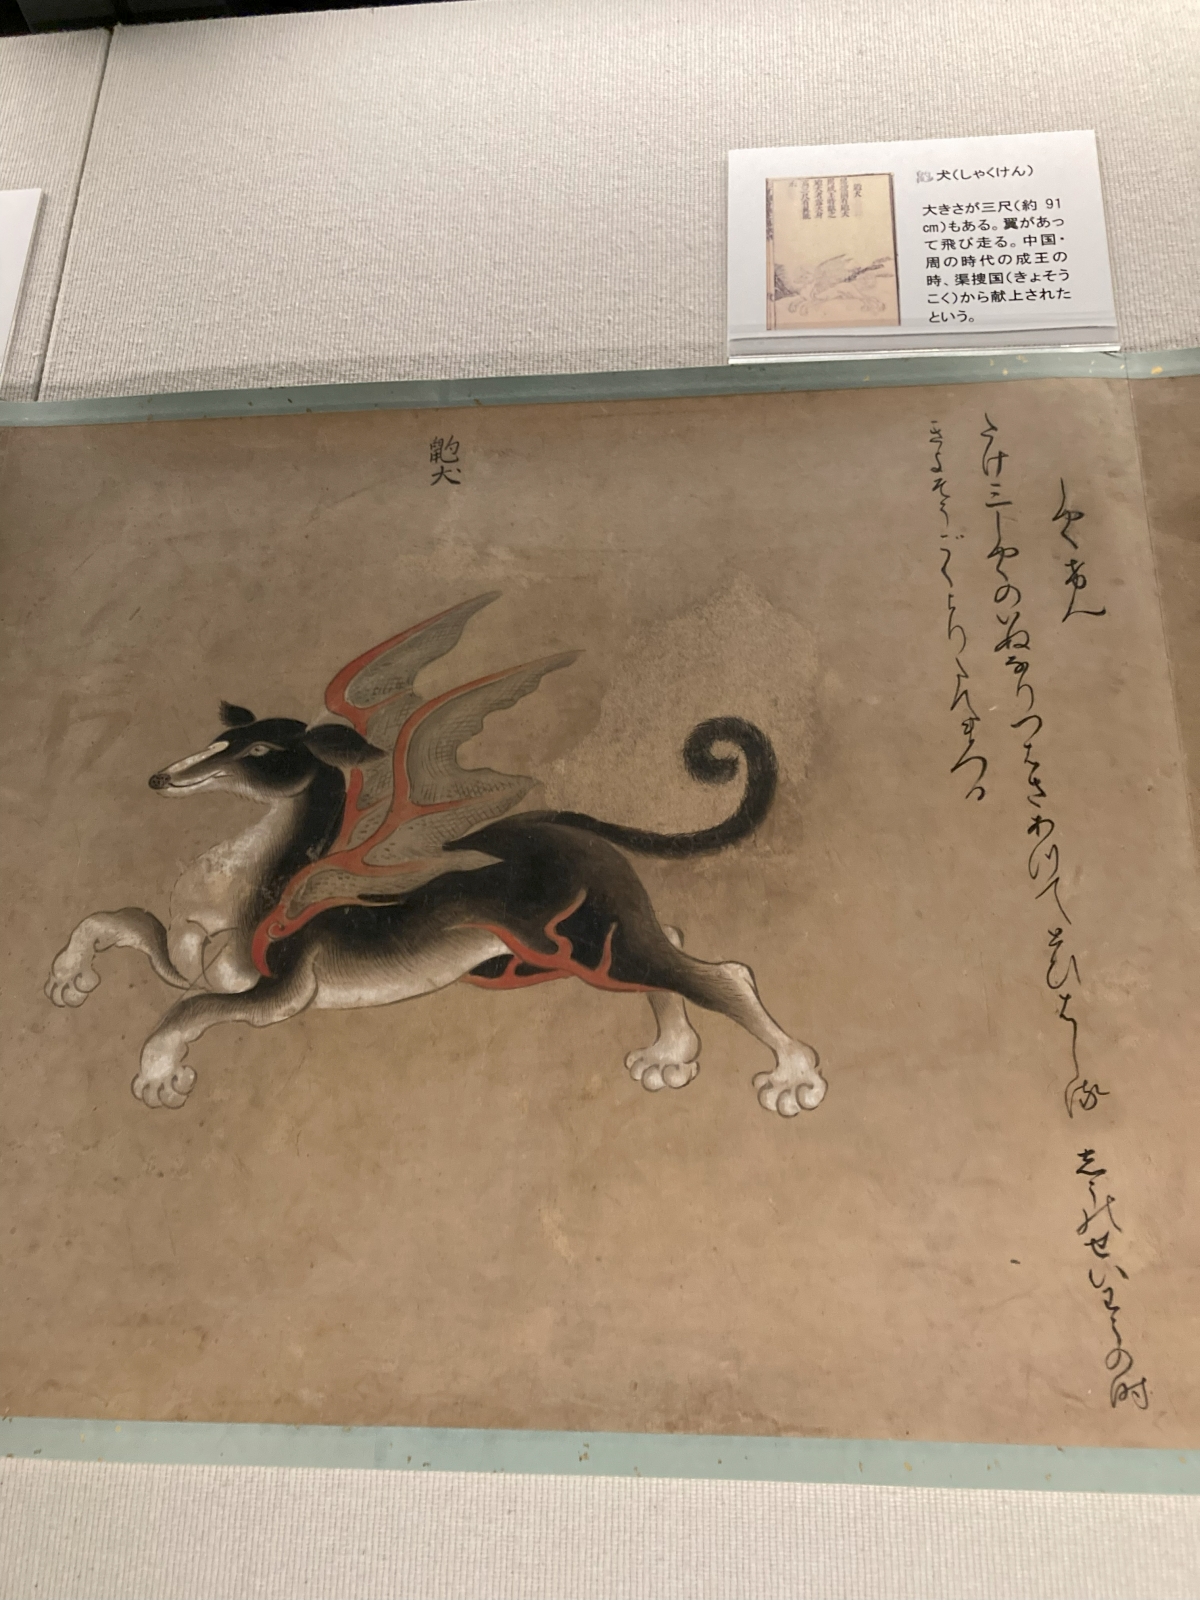 犬(しゃくけん)
大きさが三尺(約 91
cm)もある。翼があっ
て飛び走る。中国・
周の時代の成王の
時、渠捜国(きょそう
こく)から献上された
という。
鼩犬
しやくけん
たけ三しやくのいぬなりつはさありてとひはしる しうのせいわうの時
きよそうごくよりたてまつる